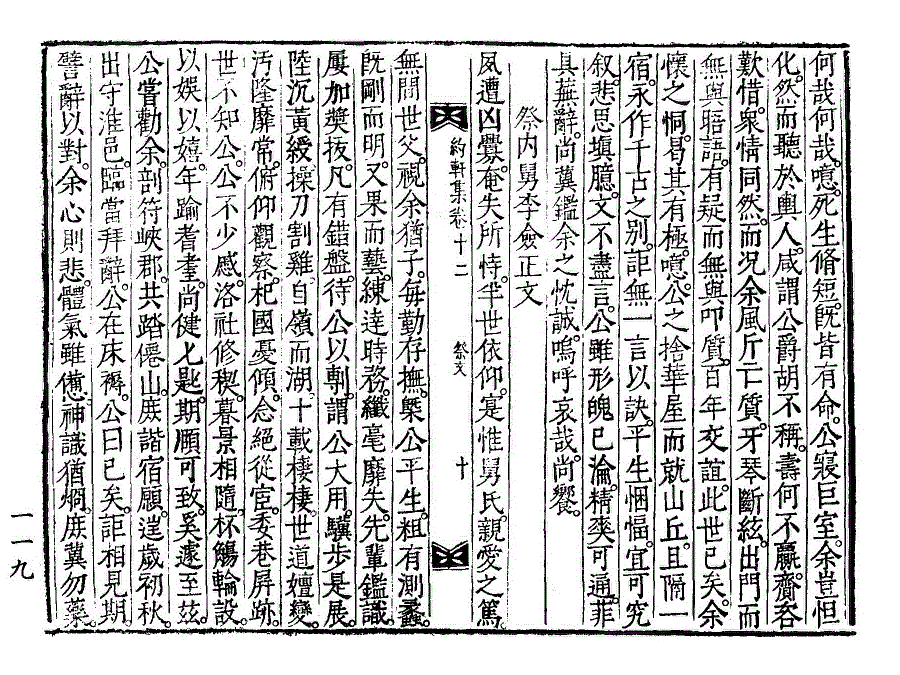 何哉何哉。噫。死生脩短。旣皆有命。公寢巨室。余豈怛
化。然而聽於輿人。咸謂公爵胡不稱。壽何不贏。齎咨
歎惜。衆情同然。而况余風斤亡質。牙琴斷絃。出門而
無與晤語。有疑而無與叩質。百年交誼。此世已矣。余
懷之恫。曷其有極。噫。公之捨華屋而就山丘。且隔一
宿。永作千古之別。詎無一言以訣。平生悃愊。宜可究
叙。悲思塡臆。文不盡言。公雖形魄已淪。精爽可通。菲
具蕪辭。尙冀鑑余之忱誠。嗚呼哀哉。尙饗。
祭內舅李僉正文
夙遭凶釁。奄失所恃。半世依仰。寔惟舅氏。親愛之篤。
約軒集卷十二 祭文 十
無間世父。視余猶子。每勤存撫。槩公平生。粗有測蠡。
旣剛而明。又果而藝。練達時務。纖毫靡失。先輩鑑識。
屢加奬拔。凡有錯盤。待公以剸。謂公大用。驥步是展。
陸沉黃綬。操刀割雞。自嶺而湖。十載棲棲。世道嬗變。
汚隆靡常。俯仰觀察。杞國憂傾。念絕從宦。委巷屛跡。
世不知公。公不少慼。洛社修稧。暮景相隨。杯觴輪設。
以娛以嬉。年踰耆耋。尙健匕匙。期願可致。奚遽至玆。
公嘗勸余。剖符峽郡。共踏僊山。庶諧宿願。逞歲初秋。
出守淮邑。臨當拜辭。公在床褥。公曰已矣。詎相見期。
譬辭以對。余心則悲。體氣雖憊。神識猶烱。庶冀勿藥。
一一九